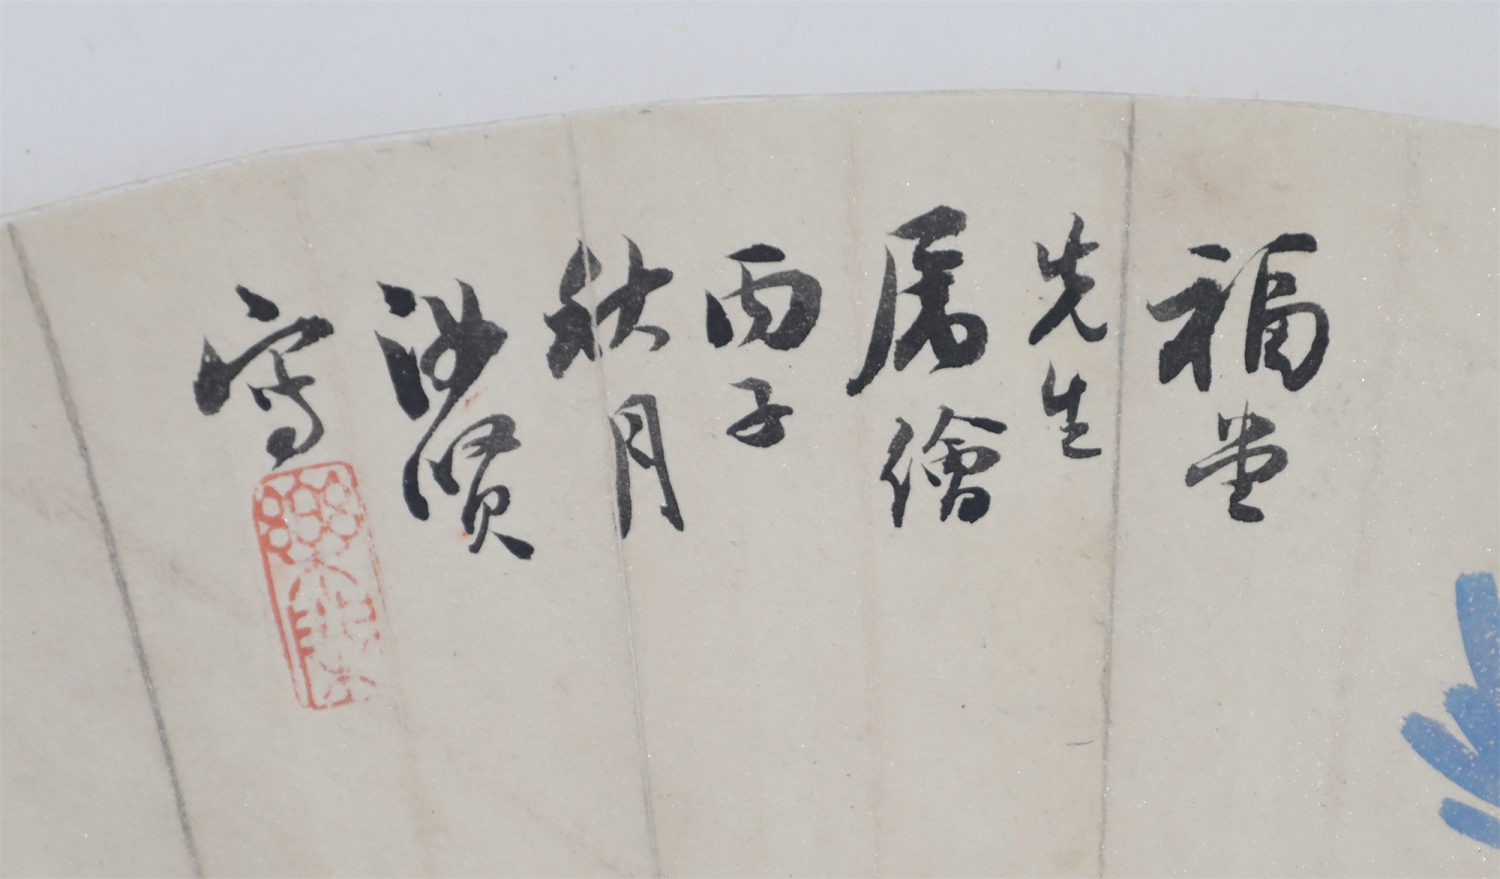 福堂
先生
属繪
丙子
秋月
洪賢
寫